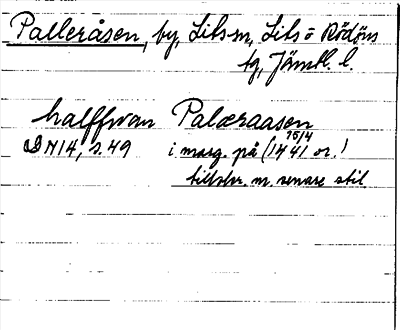 Palleråsen, by, Lits sn, Lits o Rödöns
tg, Jämtl. l.
halffwan Palæraasen
DN14, s. 49 i marg. på (15/4 1441 or.)
tillskr. m. senare stil